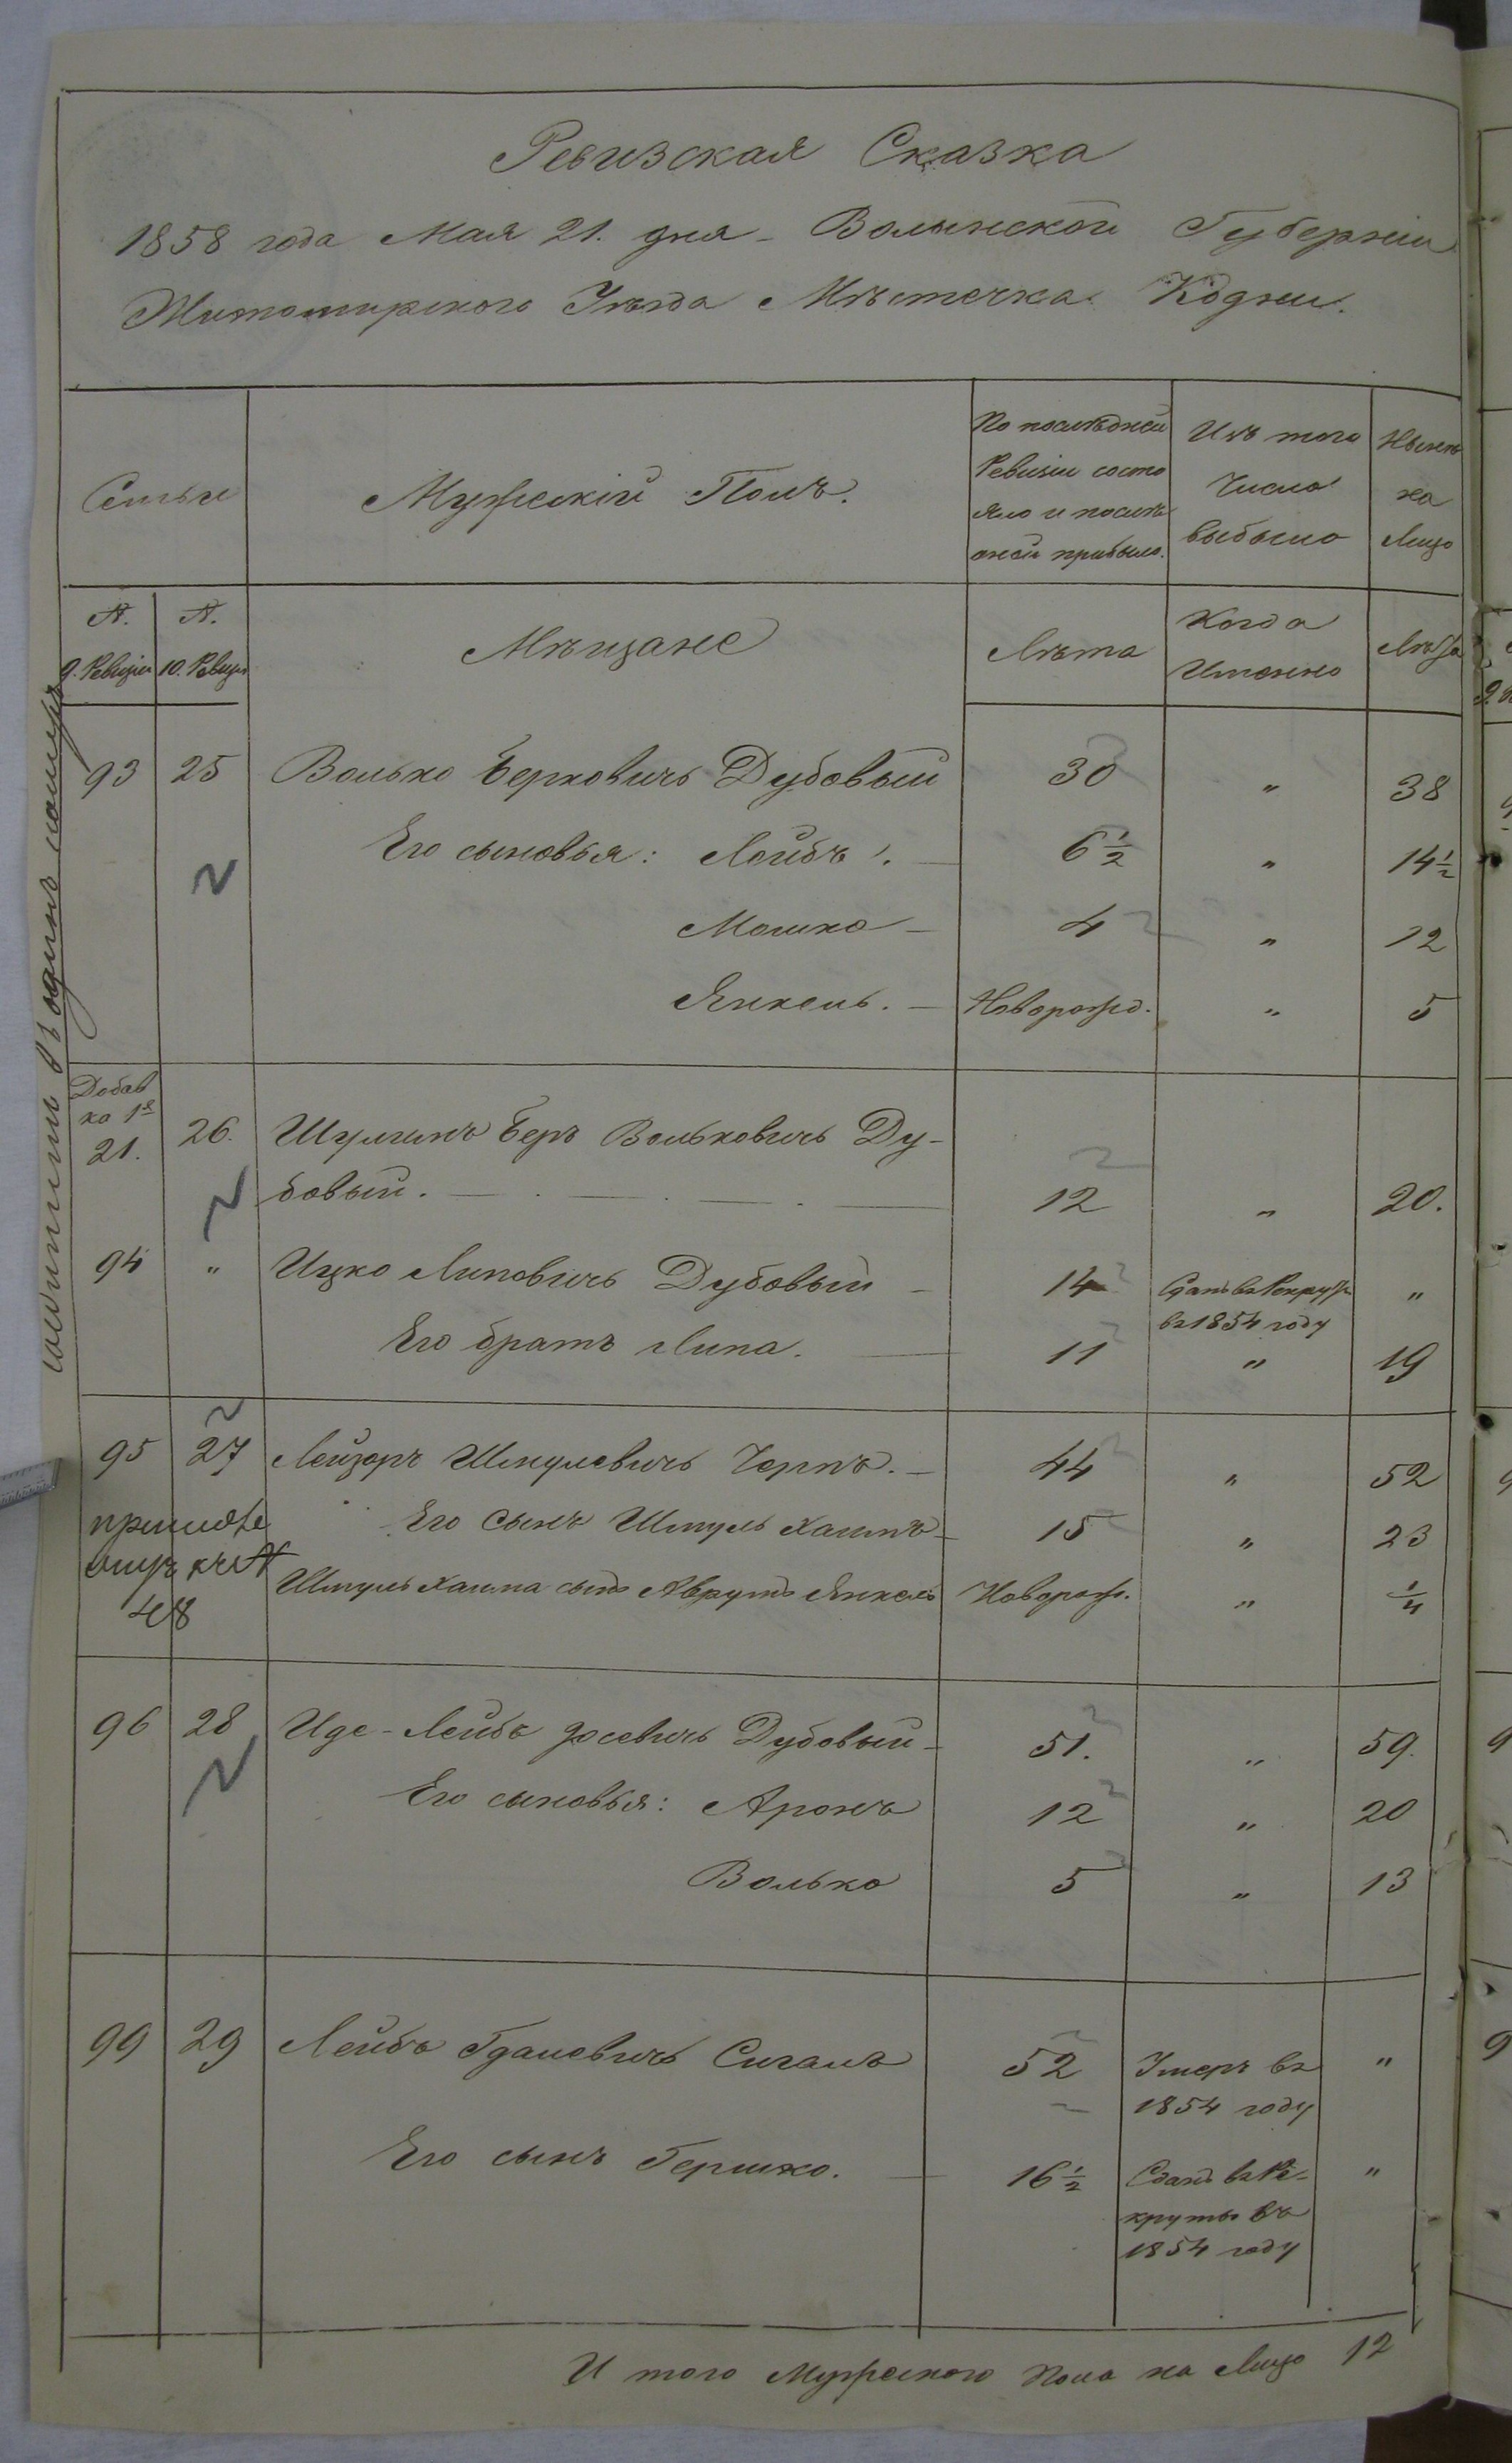 Ревизская Сказка
1858 года Мая 21. дня - Волынской Губерніи
Житомирского Уѣзда Мѣстечка Кодни.
Семьи
Мужескій Полъ.
По послѣдней Ревизіи состояло и послѣ оной прибыло.
Изъ того Числа выбыло
Нынѣ на Лицо
№. 9. Ревизіи
№. 10. Ревизіи
Мѣщане
Лѣта
Когда Именно
Лѣта
93 25 Волько Берковичъ Дубовый 30 " 38
Его сыновья: Лейбъ 1. — 6½ " 14½
Мошко — 4 " 12
Янкель. — Новорожд. " 5
Добав
ка 1я
21. 26. Шулимъ Беръ Вольковичъ Ду-
бовый. — 12 " 20.
94 " Ицко Липовичъ Дубовый — 14 Сданъ въ Рекруты "
въ 1854 году
Его братъ Липа. — 11 " 19
95 27 Лейзоръ Шмулевичъ Черпъ. — 44 " 52
Его Сынъ Шмуль Хаимъ — 15 " 23
Шмуль Хаима сынъ Аврумъ Янкель Новорож. " ¼
къ №
48
96 28 Иде-Лейбъ Іосевичъ Дубовый — 51. " 59.
Его сыновья: Аронъ 12 " 20
Волько 5 " 13
99 29 Лейбъ Гдалевичъ Сигалъ 52 Умеръ въ "
1854 году
Его сынъ Гершко. — 16½ Сданъ въ Ре- "
круты въ
1854 году
И того Мужеского Пола на Лицо 12
въ одинъ номеръ